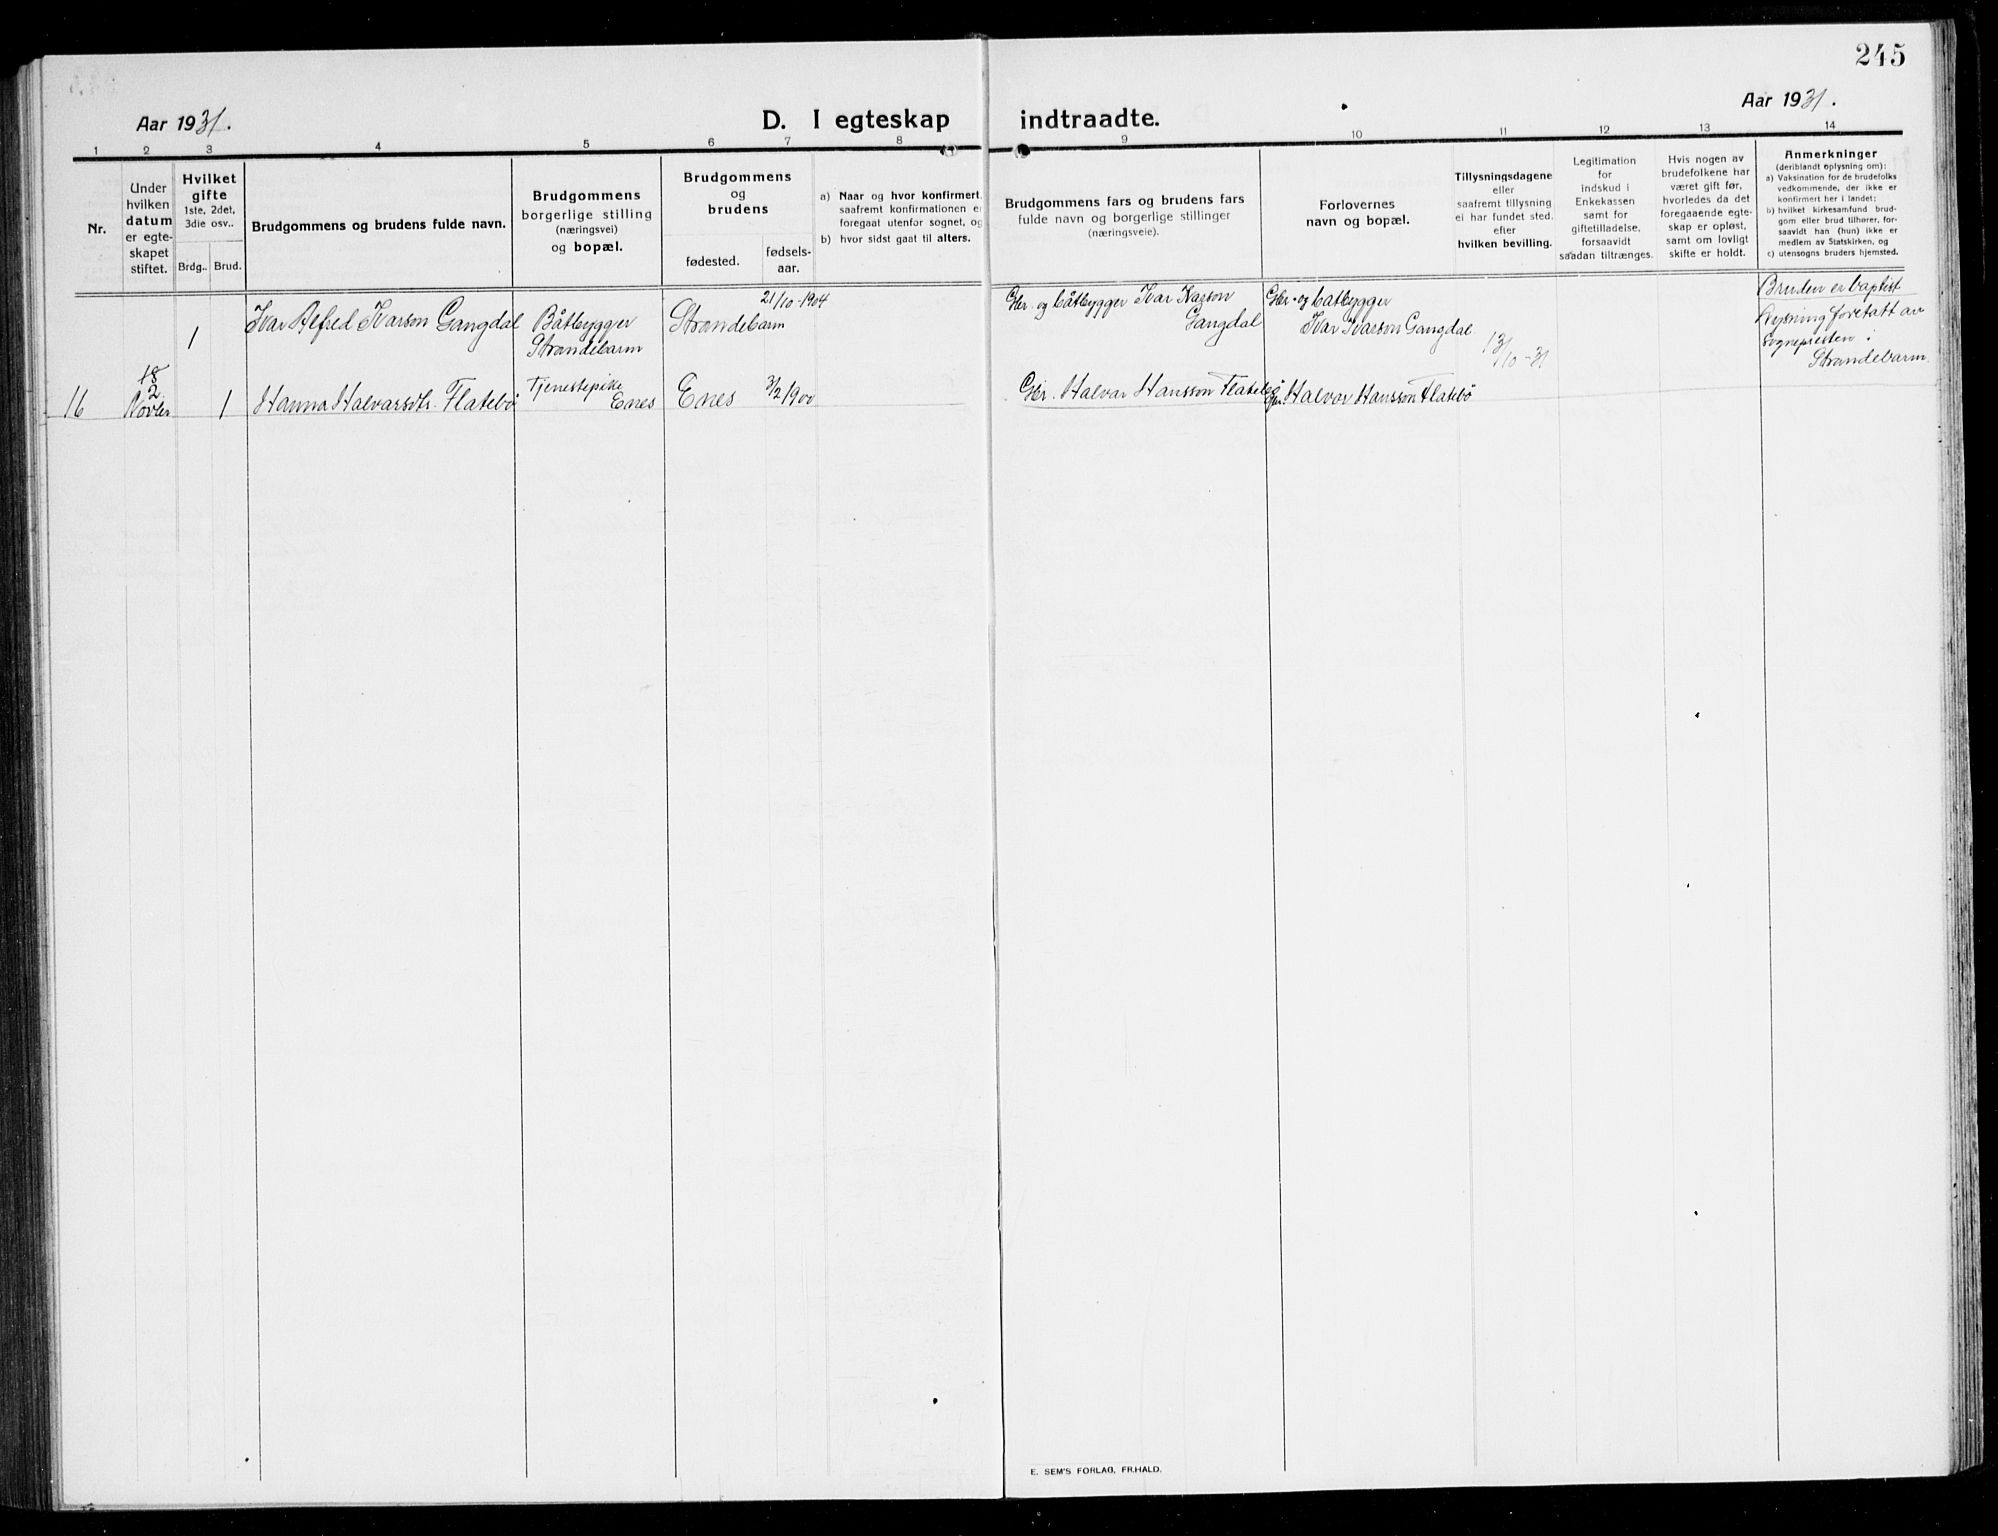 245
Aar 1931.
D. I egteskap indtraadte.
Aar 1931.
1 2 3 4 5 6 7 8 9 10 11 12 13 14
Nr.
Under
hvilken
datum
er egte-
skapet
stiftet.
Hvilket
gifte
1ste, 2det,
3die osv..
Brdg.. Brud.
Brudgommens og brudens fulde navn.
Brudgommens
borgerlige stilling
(næringsvei)
og bopæl.
Brudgommens
og
brudens
fødested.
fødsels-
aar.
a) Naar og hvor konfirmert,
saafremt konfirmationen e
foregaat utenfor sognet, og
b) hvor sidst gaat til alters.
Brudgommens fars og brudens fars
fulde navn og borgerlige stillinger
(næringsveie).
Forlovernes
navn og bopæl.
Tillysningsdagene
eller
saafremt tillysning
ei har fundet sted.
efter
hvilken bevilling.
Legitimation
for
indskud i
Enkekassen
samt for
giftetilladelse,
forsaavidt
saadan tiltrænges.
Hvis nogen av
brudefolkene har
været gift før,
hvorledes da det
foregaaende egte-
skap er opløst,
samt om lovligt
skifte er holdt.
Anmerkninger
(deriblandt oplysning om):
a) Vaksination for de brudefolks
vedkommende, der ikke er
konfirmert her i landet;
b) hvilket kirkesamfund brud-
gom eller brud tilhører, for-
saavidt han (hun) ikke er
medlem av Statskirken, og
c) utensogns bruders hjemsted.
1
Ivar Alfred Ivarson Gangdal
Båtbygger
Strandebarm
Strandebarm
21/10-1904
Gbr. og båtbygger Ivar Ivarson
Gangdal
Gbr. og båtbygger
Ivar Ivarson Gangdal
13/10-31
Bruden er baptist
Lysning foretatt av
sognepresten i
Strandebarm.
16
Novbr
1
Hanna Halvarsdtr. Flatebø
Tjenestepike
Enes
Enes
3/2 1900
Gbr. Halvar Hansson Flatebø
Gbr. Halvor Hansson Flatebø
E. SEM'S FORLAG, FR.HALD.